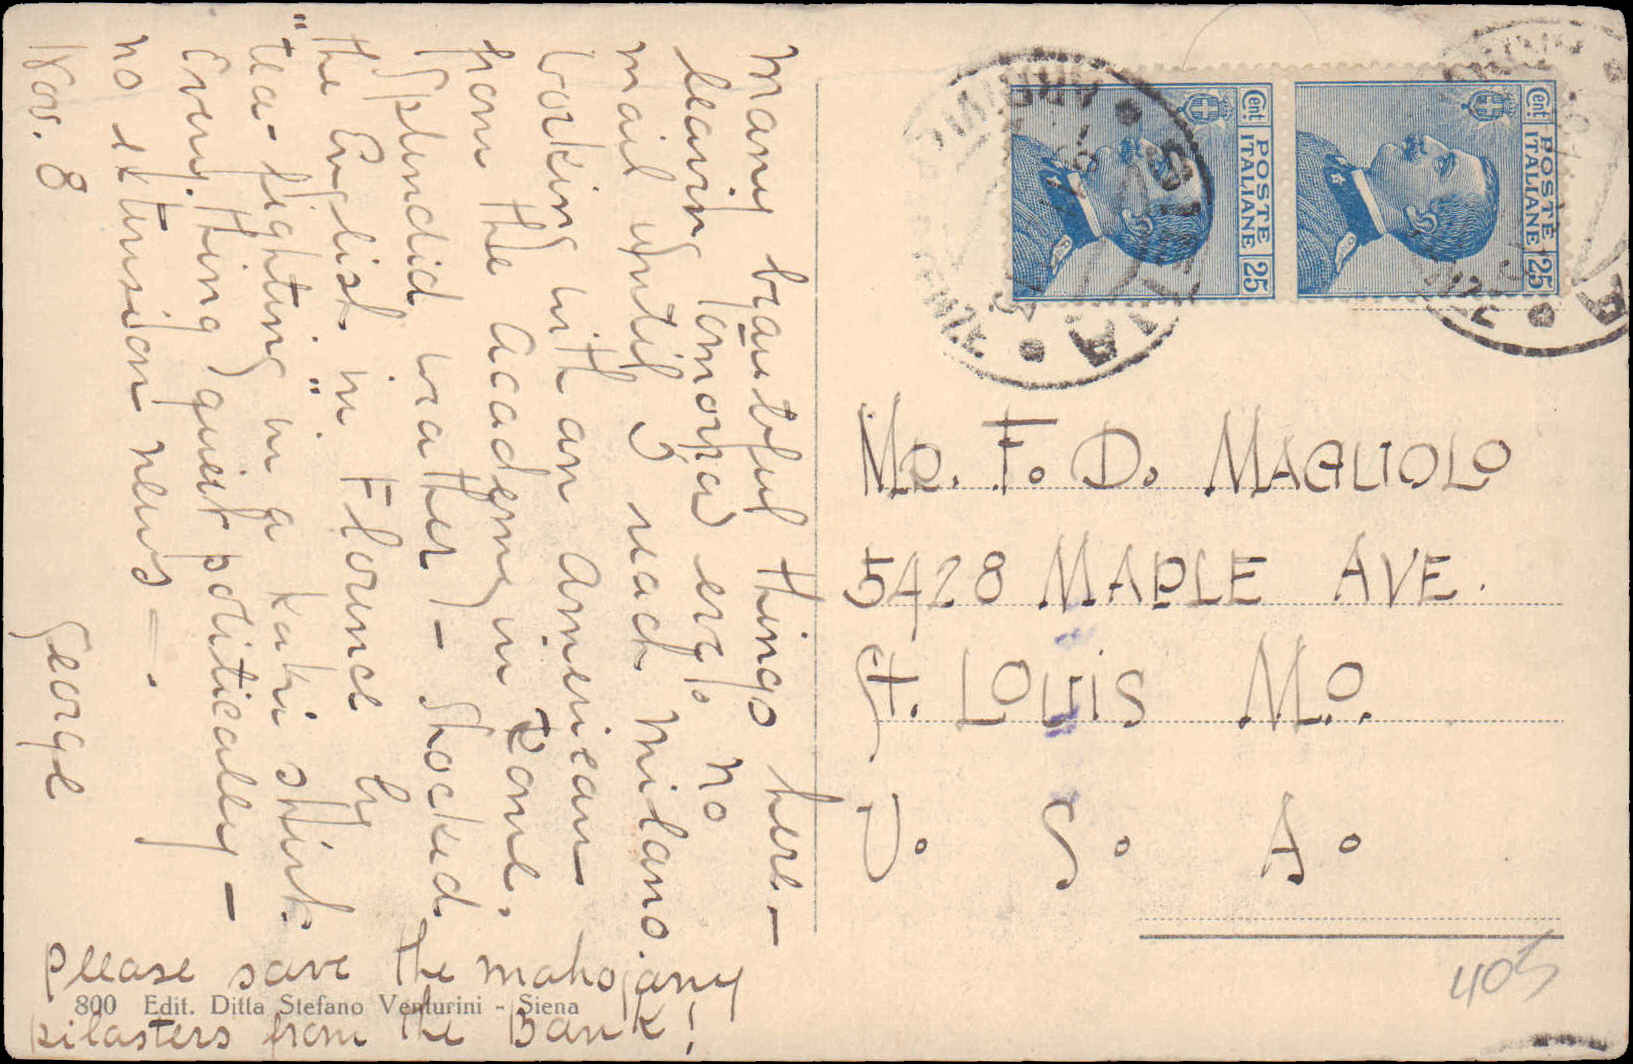 many beautiful things here -
leaving tomorrow eve, no
mail until I reach Milano.
working with an American
from the Academy in Rome.
Splendid weather - Shocked
the English in Florence by
"tea-fighting" in a kaki shirt.
Everything quiet politically -
no excursion news - .
Nov. 8 George
Please save the mahogany
pilasters from the Bank!
800 Edit. Ditta Stefano Venturini - Siena
Cent. 25
POSTE ITALIANE
Cent. 25
POSTE ITALIANE
MR. F. D. MAGLIOLO
5428 MAPLE AVE.
St. LOUiS MO.
U. S. A.
405